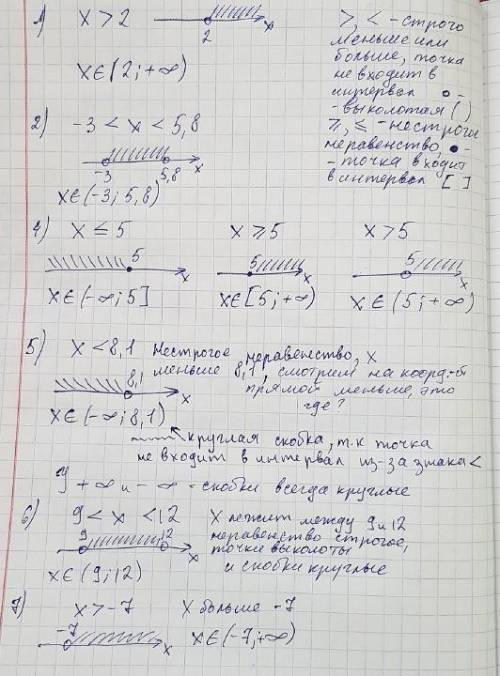 1) x > 2
2
x
x∈(2; +∞)
>, < - строго
меньше или
больше, точка
не входит в
интервал o -
- выколотая ( )
≥, ≤ - нестрогое
неравенство, ● -
- точка входит
в интервал [ ]
2) -3 < x < 5,8
-3 5,8 x
x∈(-3; 5,8)
4) x ≤ 5 x ≥ 5 x > 5
5 x 5 x 5 x
x∈(-∞; 5] x∈[5; +∞) x∈(5; +∞)
5) x < 8,1 Нестрогое неравенство, x
меньше 8,1, смотрим на коорд-й
прямой меньше, это
где?
8,1 x
x∈(-∞; 8,1)
круглая скобка, т.к точка
не входит в интервал из-за знака <
У +∞ и -∞ - скобки всегда круглые
6) 9 < x < 12 x лежит между 9 и 12
неравенство строгое,
точки выколоты
и скобки круглые
9 12 x
x∈(9; 12)
7) x > -7 x больше -7
-7 x x∈(-7; +∞)